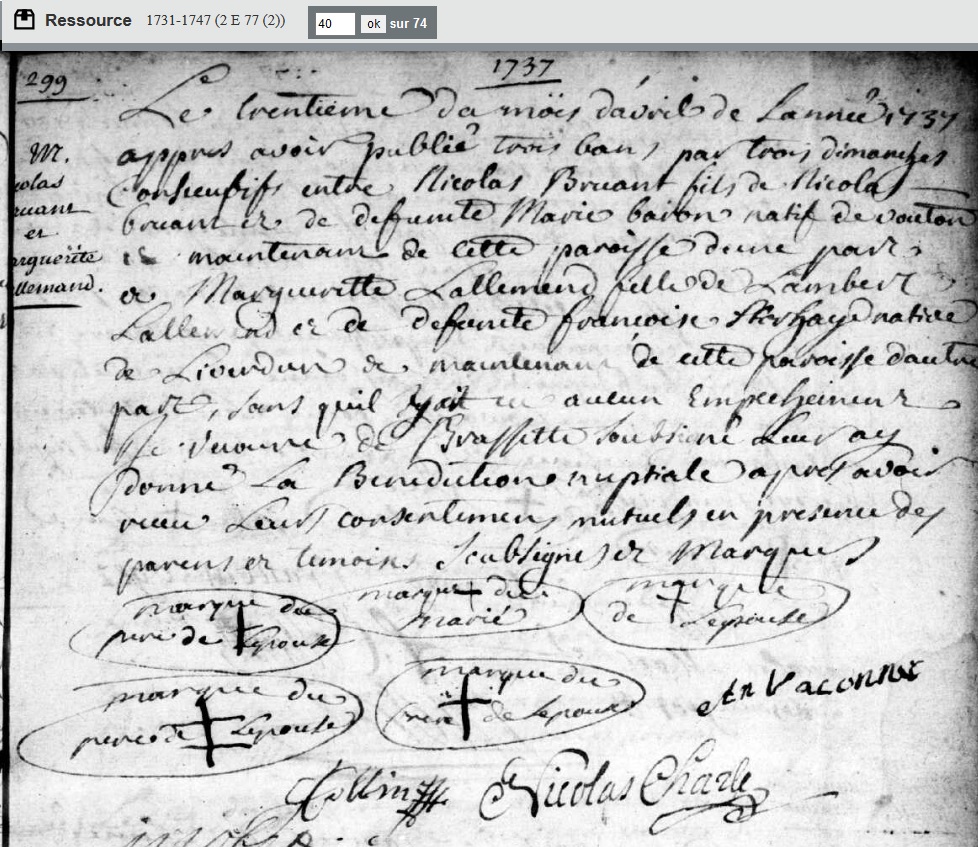 Ressource 1731-1747 (2 E 77 (2)) 40 ok sur 74
1737
299
Le trentieme du mois d'avril de Lannee 1737
appres avoir publié trois bans par trois dimanches
Consecutifs entre Nicolas Bruant fils de Nicolas
bruant et de defunte Marie baron natif de vouton
et maintenant de cette paroisse dune part
et Margueritte Lallemend fille de Lambert
Lallemend et de defunte francoise natiee
de Liourdun et maintenant de cette paroisse dautre
part, sans quil y ait eu aucun Empeschement
Je de soubsigné Leur ay
donné La Benediction nuptiale apres avoir
receu Leurs consentimens mutuels en presence des
parens et temoins soubsignes et Marques
M.
colas
ruant
et
arguerite
llemand.
marque du
pere de Lepouse
marque du
marié
marque
de Lepouse
marque du
pere de Lepouse
marque du
frere de Lepouse
Vaconnet
Collin
Nicolas Charle